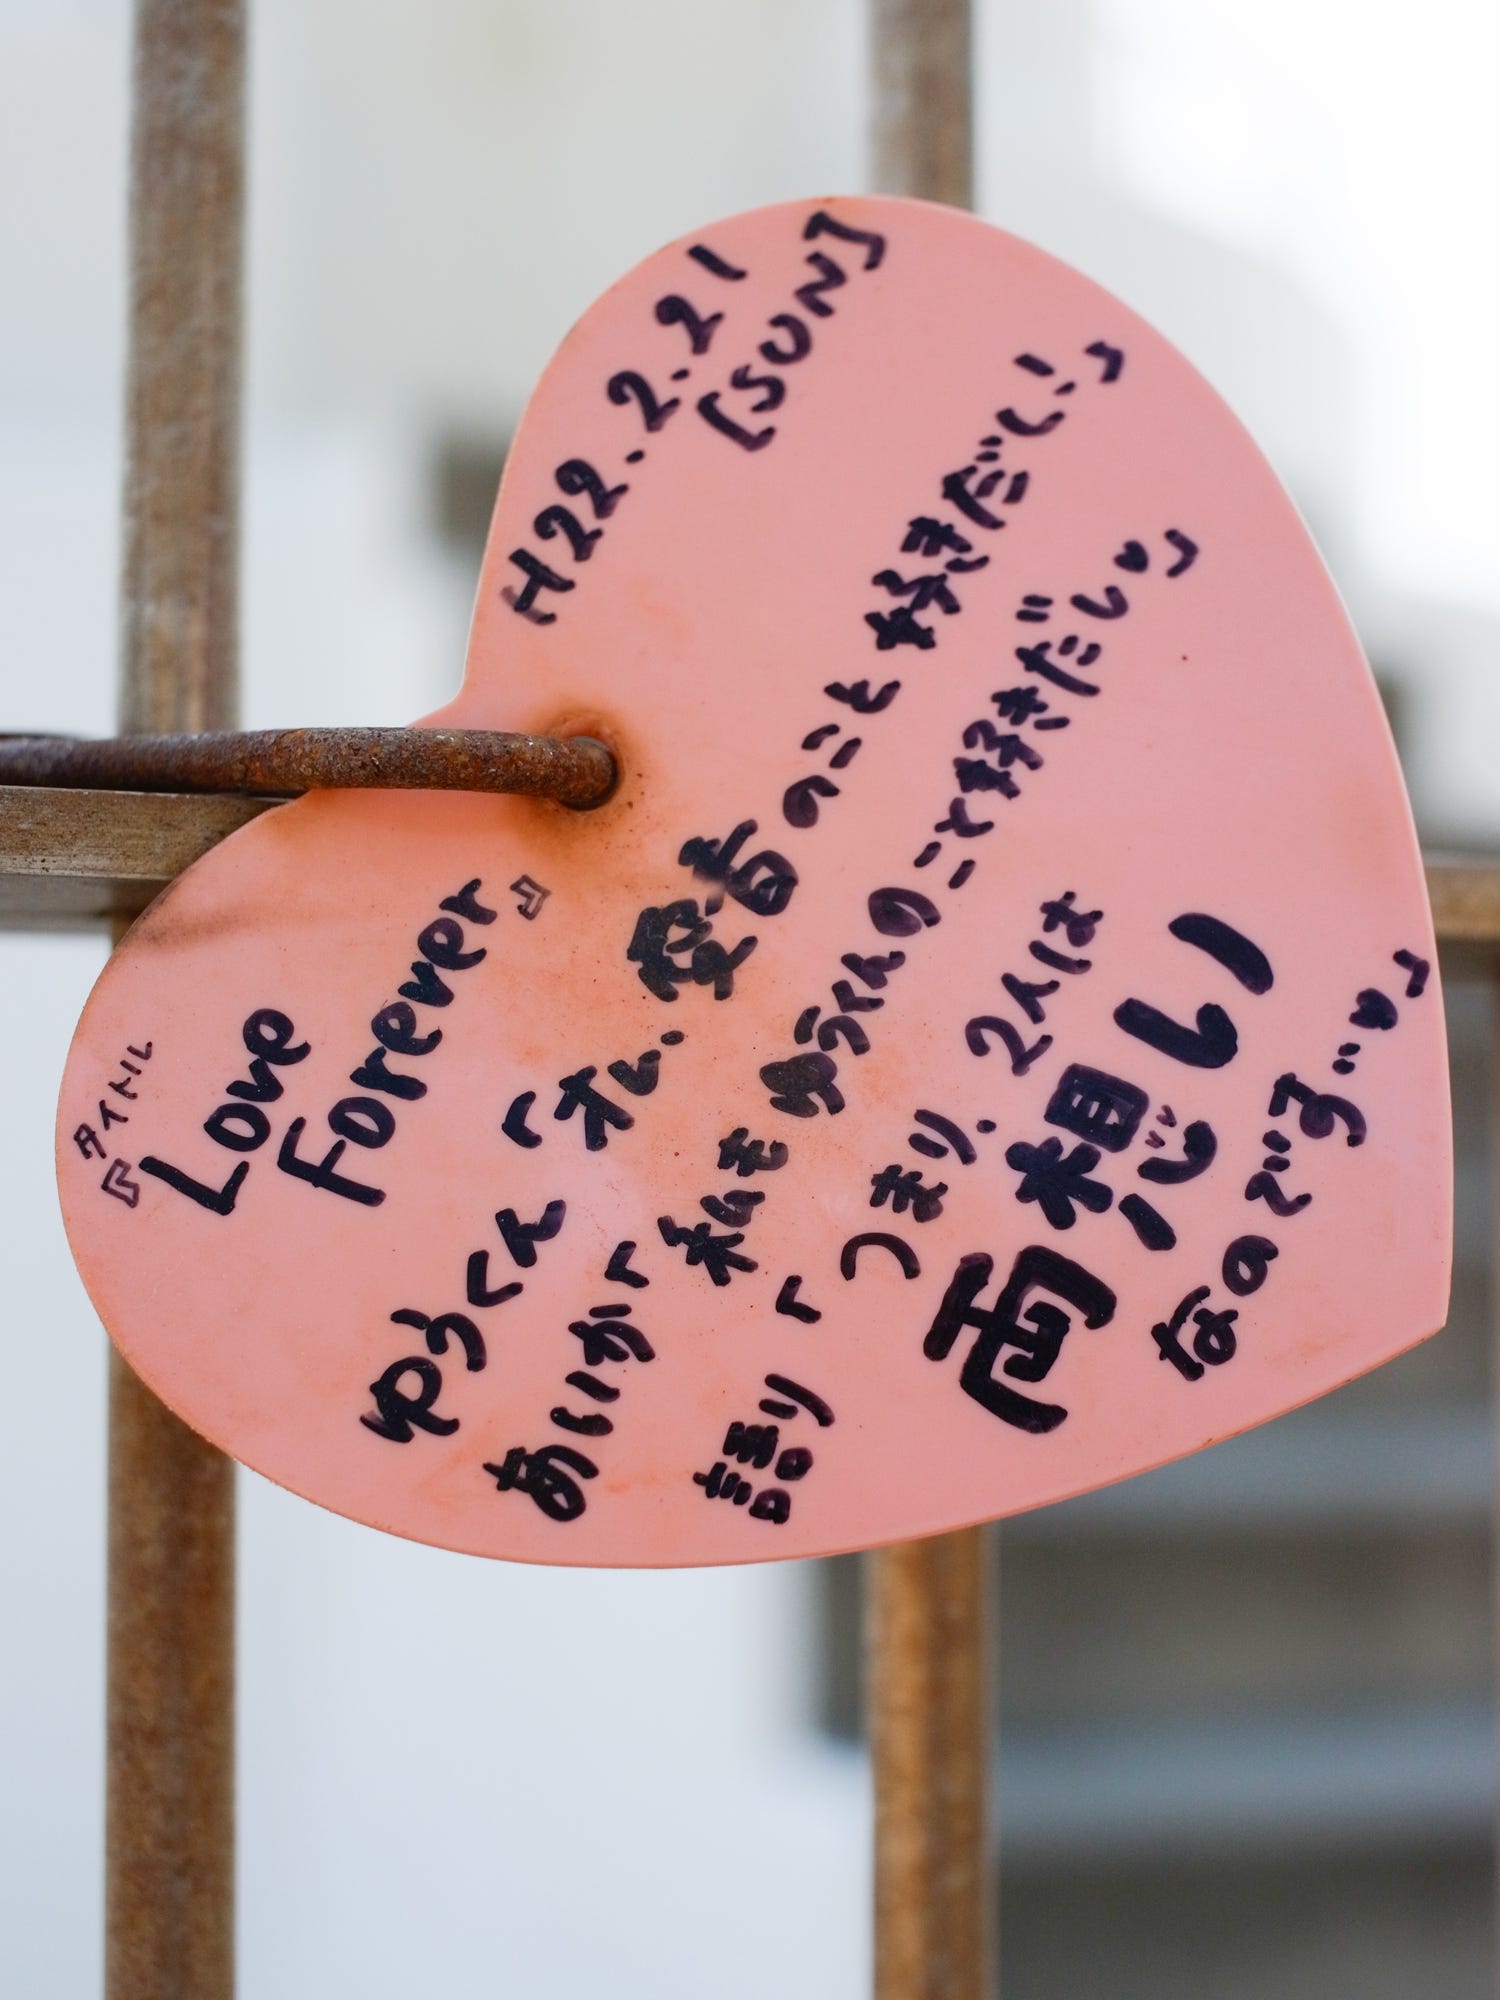 タイトル
『Love
Forever』
H22.2.21
[SUN]
ゆうくん「オレ、愛香のこと好きだし!」
あいか「私もゆうくんのこと好きだし♡」
語り「つまり、2人は
両想い
なのです…♥」